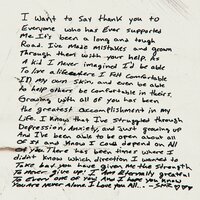 I want to say thank you to
Everyone who has Ever supported
Me. It's been a long and tough
Road. I've made mistakes and grown
Through them with your help. As
A kid I never imagined I'd be able
To live a life where I felt comfortable
In my own skin, and even be able
to help others be comfortable in theirs.
Growing with all of you has been
the greatest accomplishment in my
Life. I know that I've struggled through
Depression, Anxiety, and just growing up
And I've been able to be open about all
of it and know I could depend on all
of you. There has been times where I
didnt know which direction I wanted to
Take but you have given me the strength
To never give up! I Am Eternally grateful
To Every one of you Any I hope you know
You Are never Alone I Love you All...